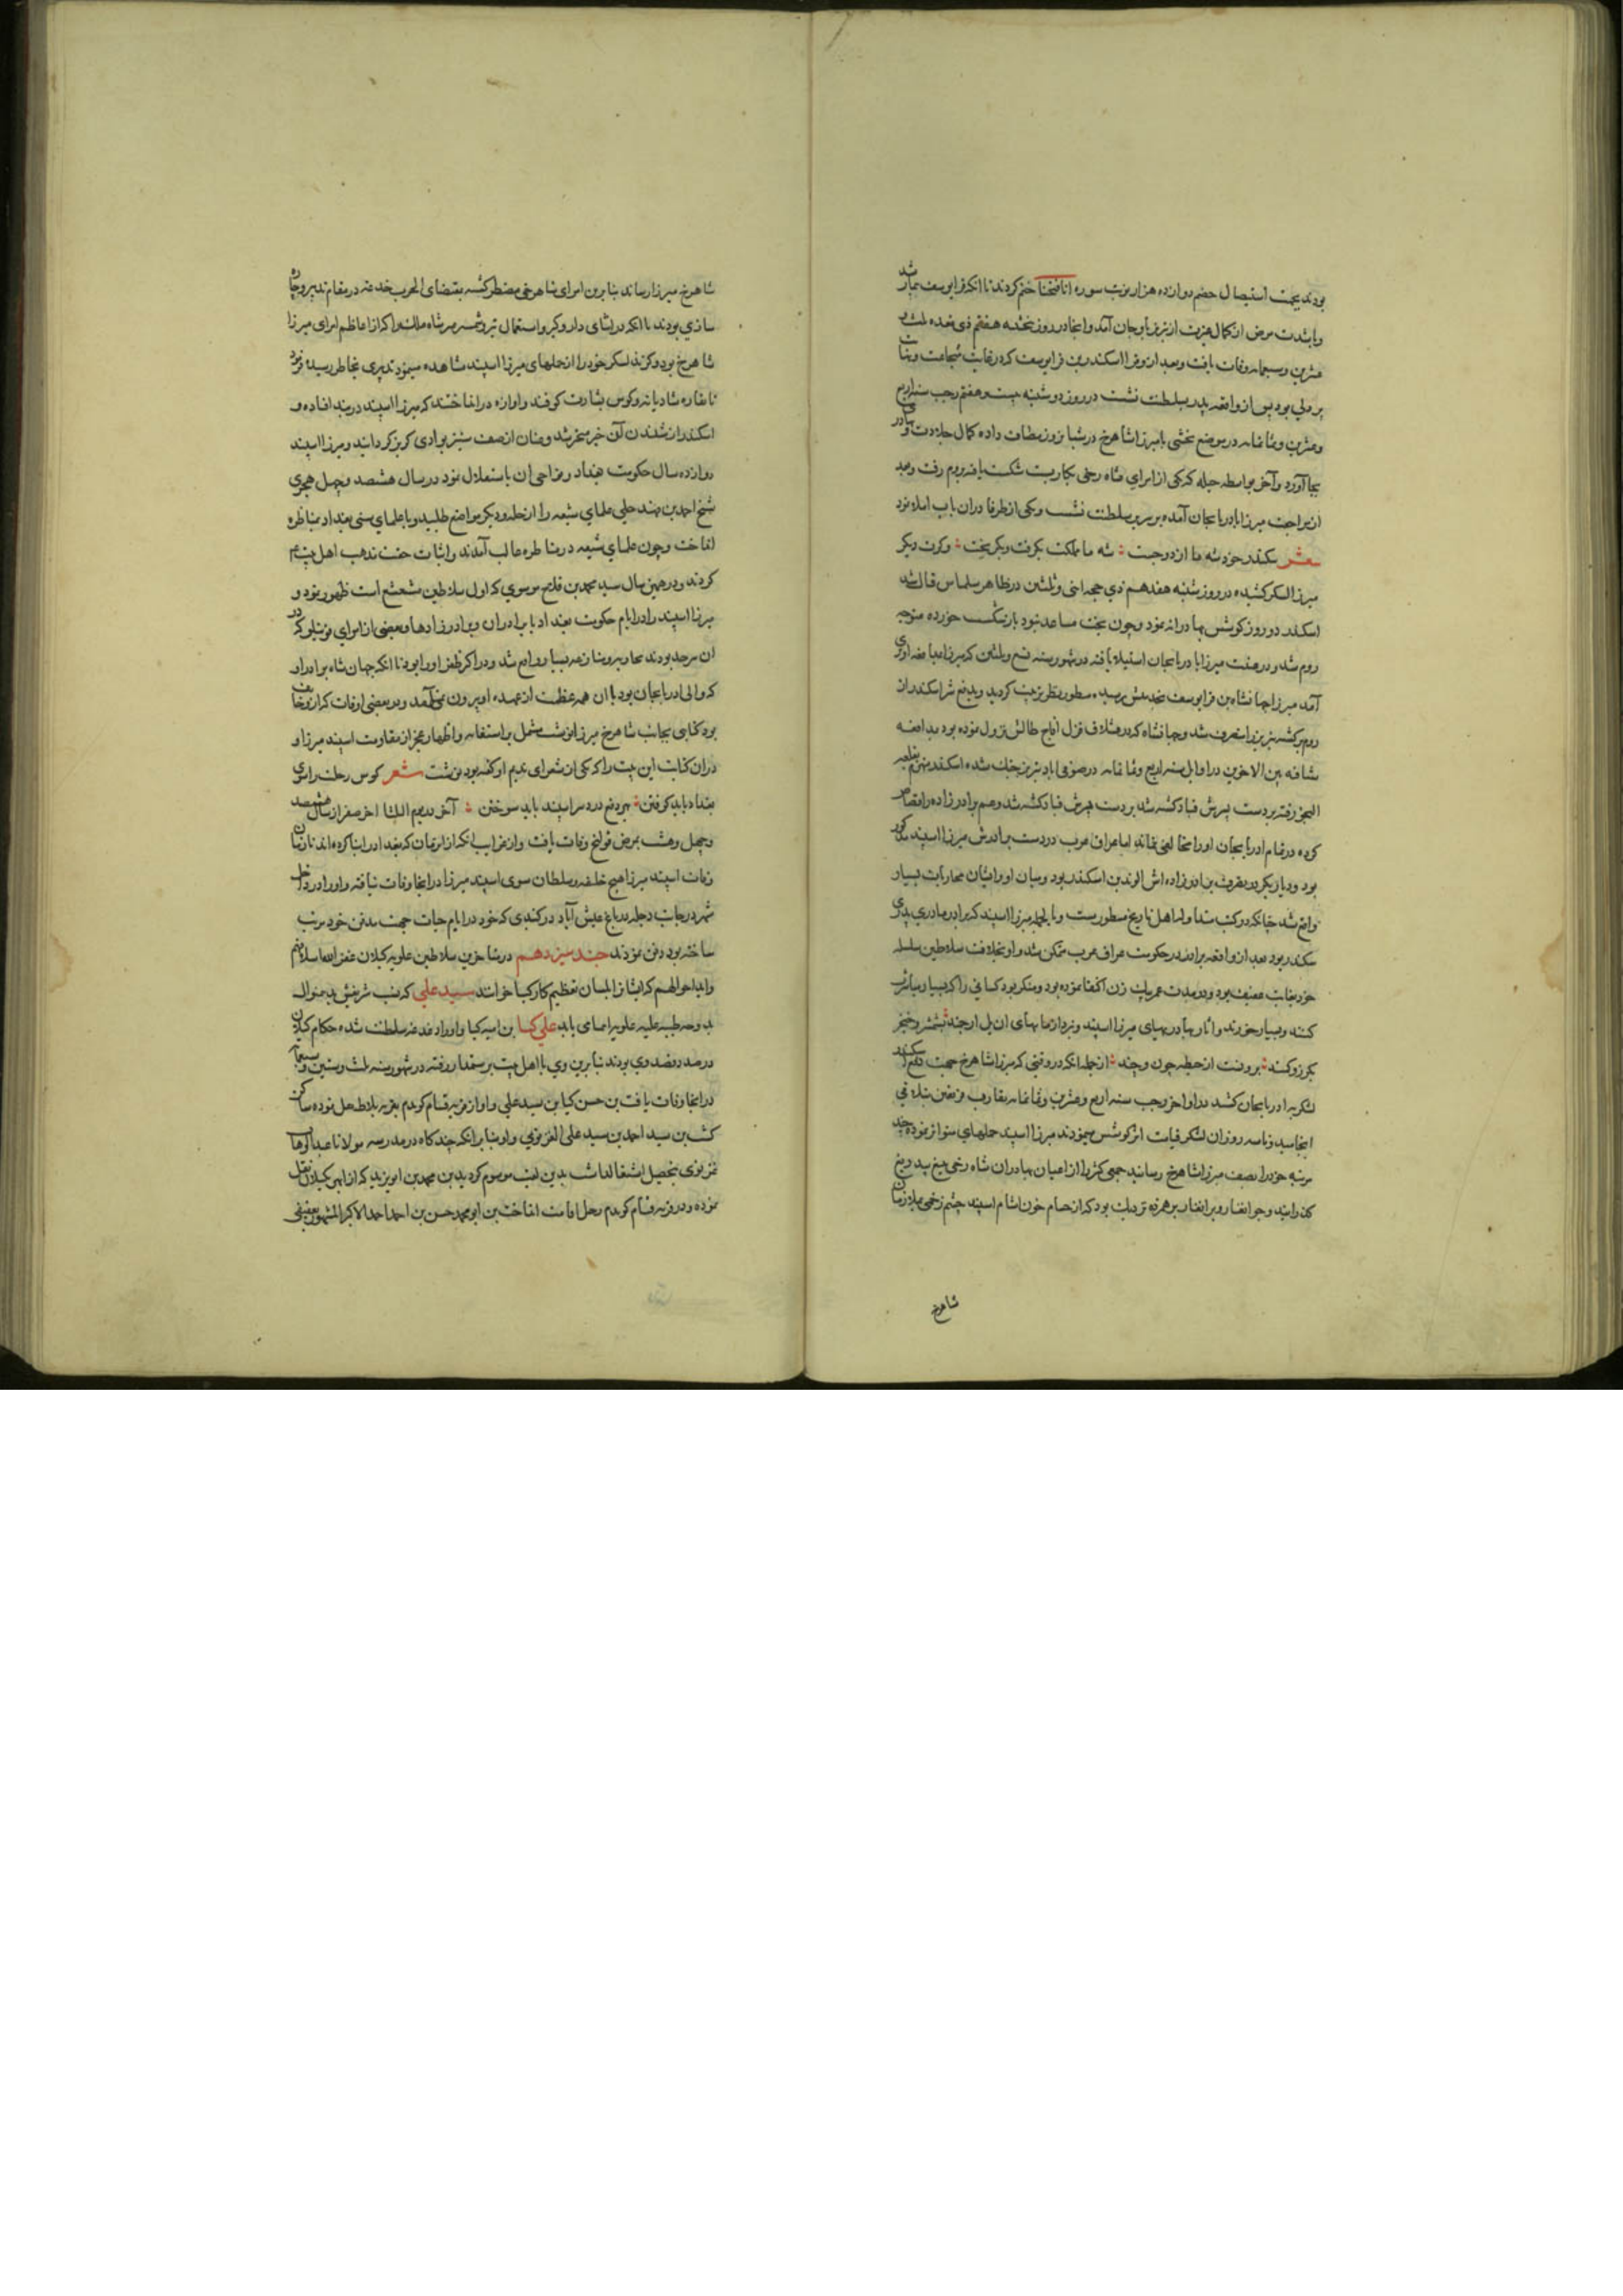 بودند بجهت استیصال خصم دوازده هزار نوبت سوره انا فتحنا ختم کردند تا انکه قرایوسف بیمار شد
و باشدت مرض از کمال غیرت از تبریز باوجان آمد و انجا در روز پنجشنبه هفتم ذی قعده ثلث و
عشرین و سبعمایه وفات یافت و بعد از و میرزا اسکندر بن قرایوسف که در غایت شجاعت و نهایت
پر دلی بود پس از واقعه پدر بسلطنت نشست در روز دوشنبه بیست و هفتم رجب سنه اربع
و عشرین و ثمانمایه در موضع یخشی با میرزا شاهرخ در شبانروز مصاف داده کمال جلادت و بهادری
بجا آورد و آخر بواسطه حیله که یکی از امرای شاهرخی بکار برد شکست یافته بروم رفت و بعد
از مراجعت میرزا باذربایجان آمده بر سریر سلطنت نشست و یکی از ظرفا دران باب املا نمود
شعر سکندر خود شه ما از دو جست ؞ شه ما مملکت بگرفت و بگریخت ؞ و کرت دیگر
میرزا لشکر کشیده در روز شنبه هفدهم ذی حجه اثنی و ثلثین در ظاهر سلماس قتال شد
اسکندر دو روز کوشش بهادرانه نمود و چون بخت مساعد نبود باز شکست خورده متوجه
روم شد و در هفت میرزا با دربایجان استیلا یافته در شهور سنه تسع و ثلثین که میرزا بمدافعه اوری
آمد میرزا جهانشاه بن قرایوسف بخدمتش رسیده منظور نظر تربیت کردید و بدفع شر اسکندر از
روم برگشته تبریز را متصرف شد و جهانشاه که در قشلاق قزل اغاج طالش نزول نموده بود بمدافعه
شتافته بین الاخوین در اوایل سنه اربع و ثمانمایه در صوفی اباد تبریز جنگ شده اسکندر منهزم بقلعه
النجق رفته بر دست پسرش قباد کشته شد بر دست پسرش قباد کشته شد و عم برادرزاده را قصاص
کرده در تمام اذربایجان او را مخالفی نماند اما عراق عرب در دست برادرش میرزا اسپند مذکور
بود و دیاربکر در تصرف برادرزاده اش الوند بن اسکندر بود و میان او و ایشان محاربات بسیار
واقع شد چنانکه در کتب متداوله اهل تاریخ مسطورست و بالجمله میرزا اسپند که برادر مادری پدری
سکندر بود بعد از واقعه برادر در حکومت عراق عرب متمکن شد و او بخلاف سلاطین سلسله
خود بغایت عفیف بود و در مدت عمر بیک زن اکتفا نموده بود و منکر بود کسانی را که بسیار مباشرت
کنند و بسیار خورند و آثار بهادریهای میرزا اسپند و نبردآزماییهای ان یل ارجمند بشمشیر و خنجر
بگرز و کمند ؞ برونست از حیطه چون و چند ؞ از جمله انکه در وقتی که میرزا شاهرخ جهت دفع اسکندر
لشکر به اذربایجان کشید در اواخر رجب سنه اربع و عشرین و ثمانمایه تقارب فریقین بتلاقی
انجامید و تا سه روز ان لشکر قیامت اثر کوشش مینمودند میرزا اسپند حملهای متواتر نموده چند
مرتبه خود را بصف میرزا شاهرخ رسانید جمعی کثیر را از اعیان بهادران شاهرخی بتیغ بیدریغ
گذرانید و جوانغار و برانغار برهم زده نزدیک بود که از حسام خون اشام اسپند چشم زخمی بملازمان
شاهرخ
شاهرخ میرزا رساند بنابرین امرای شاهرخی مضطر گشته بمقتضای الحرب خدعه در مقام تدبیر و چاره
سازی بودند تا انکه در اثنای دار و گیر و استعمال تیر و شمشیر میر شاه ملک را که از اعاظم امرای میرزا
شاهرخ بود و گزند لشکر خود را از حملهای میرزا اسپند مشاهده مینمود تدبیری بخاطر رسید فرمود
تا نقاره شادیانه و کوس بشارت کوفتند و اوازه در انداختند که میرزا اسپند در بند افتاده و
اسکندر از شنیدن آن خبر متحیر شد و عنان از صف ستیز بوادی گریز گردانید و میرزا اسپند
دوازده سال حکومت بغداد و نواحی ان باستقلال نمود در سال هشتصد و چهل هجری
شیخ احمد بن فهد حلی علمای شیعه را از حله و دیگر مواضع طلبید و با علمای سنی بغداد بمناظره
انداخت و چون علمای شیعه در مناظره غالب آمدند و اثبات حقیت مذهب اهل بیت ع
کردند و در همین سال سید محمد بن فلاح موسوی که اول سلاطین مشعشع است ظهور نمود و
میرزا اسپند را در ایام حکومت بغداد با برادران و برادرزادها و بعضی از امرای قویتلو که در
ان سرحد بودند محاربه و منازعه بسیار واقع شد و در اکثر ظفر او را بود تا انکه جهان شاه برادر او
که والی اذربایجان بود با ان همه عظمت از عهده او بیرون نمی آمد و در بعضی اوقات که از و خایف
بود کتابی بجانب شاهرخ میرزا نوشت مشتمل بر استغاثه و اظهار عجز از مقاومت اسپند میرزا و
دران کتابت این بیت را که یکی از شعرای ندیم او گفته بود نوشت شعر کوس رحلت را سوی
بغداد باید کوفتن ؞ بهر دفع درد سر اسپند باید سوختن ؞ آخر در یوم الثلثا اخر صفر از سال هشتصد
و چهل و هشت بمرض قولنج وفات یافت و از غرایب انکه از زمان که بغداد را بنا کرده اند تا زمان
وفات اسپند میرزا هیچ خلیفه و سلطان سوی اسپند میرزا در انجا وفات نیافته و او را در داخل
شهر در جانب دجله در باغ عیش آباد در گنبدی که خود در ایام حیات جهت مدفن خود مرتب
ساخته بود دفن نمودند جند سیزدهم در متاخرین سلاطین علویه گیلان غفر الله اسلافهم
و ابدا احوالهم که ایشان را بلسان تعظیم کارکیا خوانند سید علی که نسب شریفش بدین منوال
بدوحه طیبه علیه علویه انتمای یابد علی کیا بن امیر کیا و او را دغدغه سلطنت شده حکام گیلان
در صدد قصد وی بودند بنابرین وی با اهل بیت برستمدار رفته در شهور سنه ثلث و ستین و سبعمایه
در انجا وفات یافت بن حسن کیا بن سید علی و او از قریه قسام کوهدم بقریه بلاط نقل نموده ساکن
گشت بن سید احمد بن سید علی الغزنوی و او بنابر انکه چند گاه در مدرسه مولانا عبدالوهاب
غزنوی بتحصیل اشتغال داشت بدین لقب موسوم گردید بن محمد بن ابو یزید که از ابهر بگیلان نقل
نموده و در قریه قسام کوهدم رحل اقامت انداخت بن ابو محمد حسن بن احمد الاکبر المشهور بعقیقی